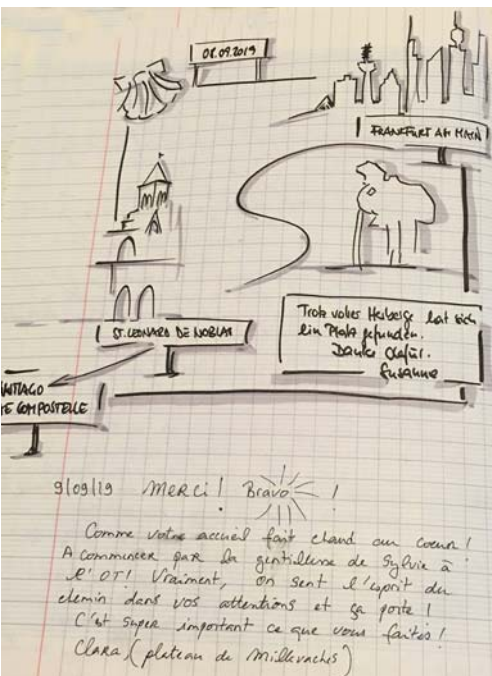 08.09.2019
FRANKFURT AM MAIN
Trotz voller Herberge hat sich
ein Platz gefunden.
Danke dafür.
Susanne
ST. LEONARD DE NOBLAT
COMPOSTELLE
9/09/19 MERCI! Bravo!
Comme votre accueil fait chaud au coeur!
A commencer par la gentillesse de Sylvie à
l'OT! Vraiment, on sent l'esprit du
chemin dans vos attentions et ça porte!
C'est super important ce que vous faites!
Clara, (plateau de Millevaches)